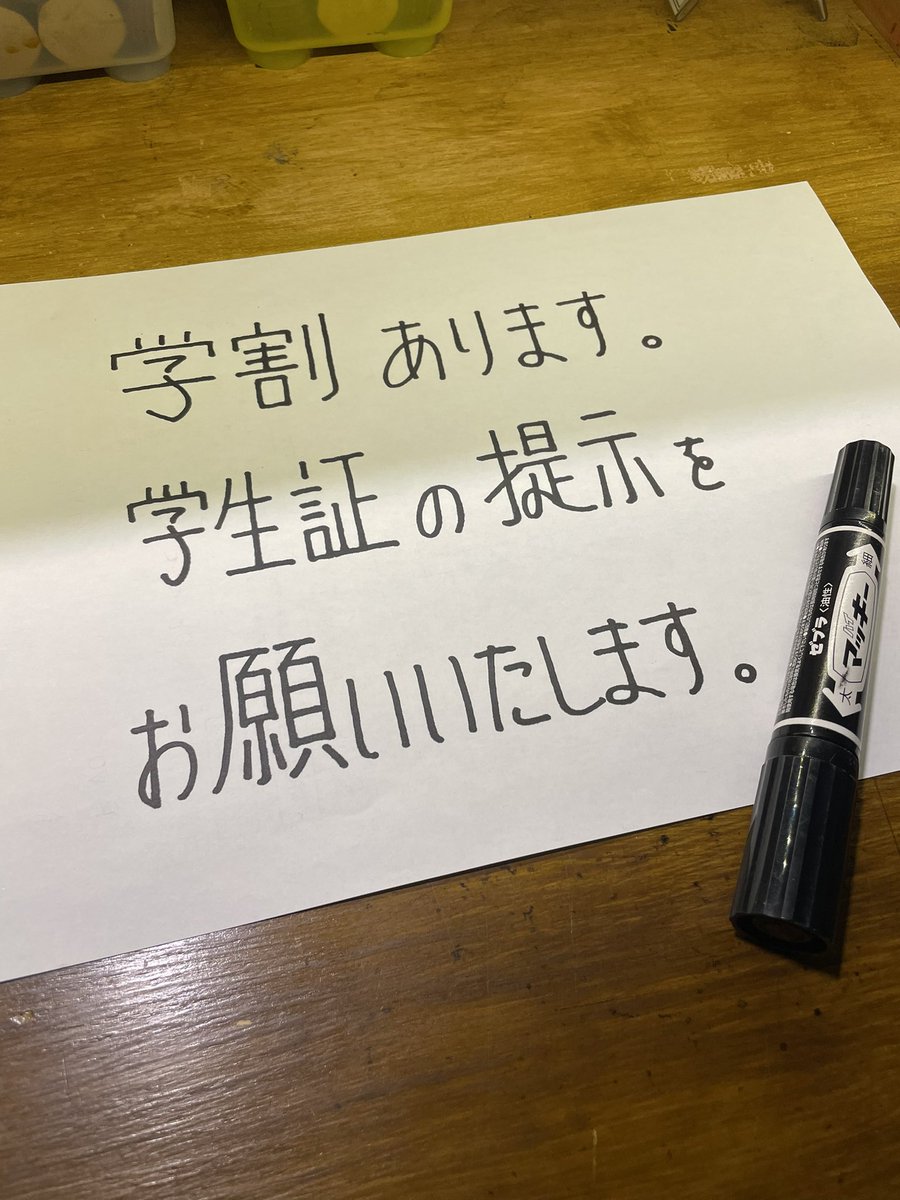 学割 あります。
学生証の提示を
お願いいたします。
ゼブラ〈油性〉
マッキー
太
細